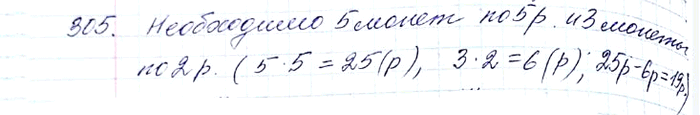 305. Необходимо 5 монет по 5 р. и 3 монеты
по 2 р. ( 5 · 5 = 25 (р), 3 · 2 = 6 (р); 25р - 6р = 19р.)